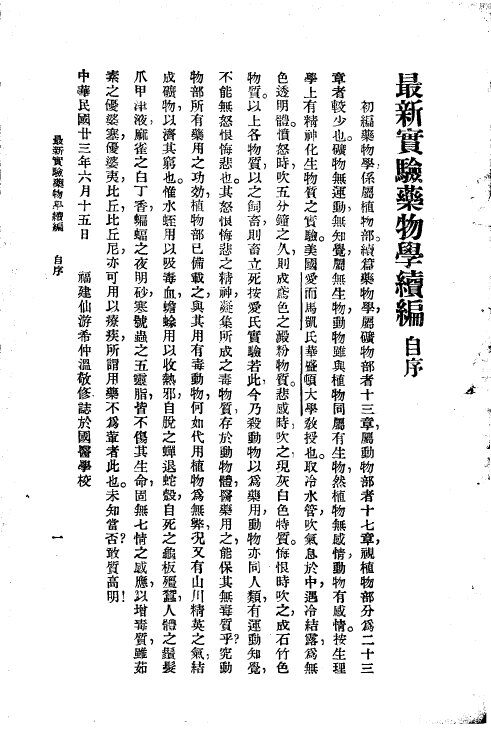 最新實驗藥物學續編 自序
初編藥物學係屬植物部。續篇藥物學，屬礦物部者十三章，屬動物部者十七章，視植物部分爲二十三
章者較少也。礦物無運動無知覺，屬無生物，動物雖與植物同屬有生物，然植物無感情，動物有感情。按生理
學上有精神化生物質之實驗。美國愛而馬凱氏華盛頓大學教授也。取冷水管，吹氣息於中，遇冷結露，爲無
色透明體。憤怒時吹五分鐘之久，則成鳶色之澱粉物質。悲戚時，吹之，現灰白色特質。悔恨時吹之，成石竹色
物質。以上各物質，以之飼畜，則畜立死，按愛氏實驗若此，今乃殺動物以爲藥用，動物亦同人類，有運動知覺，
不能無怒恨悔悲也。其怒恨悔悲之精神，凝集所成之毒物質，存於動物體，醫藥用之，能保其無毒質乎？究動
物部所有藥用之功効，植物部已備載之，與其用有毒動物，何如代用植物爲無弊，况又有山川精英之氣，結
成礦物，以濟其窮也。惟水蛭用以吸毒血，蟾蜍用以收熱邪，自脫之蟬退蛇殼，自死之龜板殭蠶，人體之鬚髮
爪甲津液，麻雀之白丁香，蝙蝠之夜明砂，寒號蟲之五靈脂，皆不傷其生命，固無七情之感應，以增毒質，雖茹
素之優婆塞，優婆夷，比丘，比丘尼，亦可用以療疾，所謂用藥不爲葷者此也。未知當否？敢質高明！
中華民國廿三年六月十五日 福建仙游希仲溫敬修誌於國醫學校
最新實驗藥物學續編 自序 一